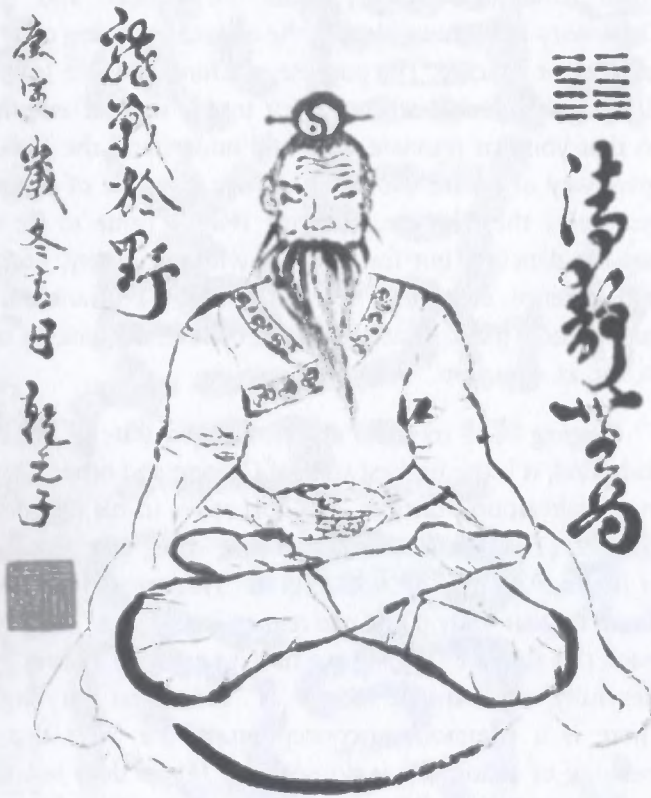 清靜無為
龍戰於野
庚寅歲冬吉日